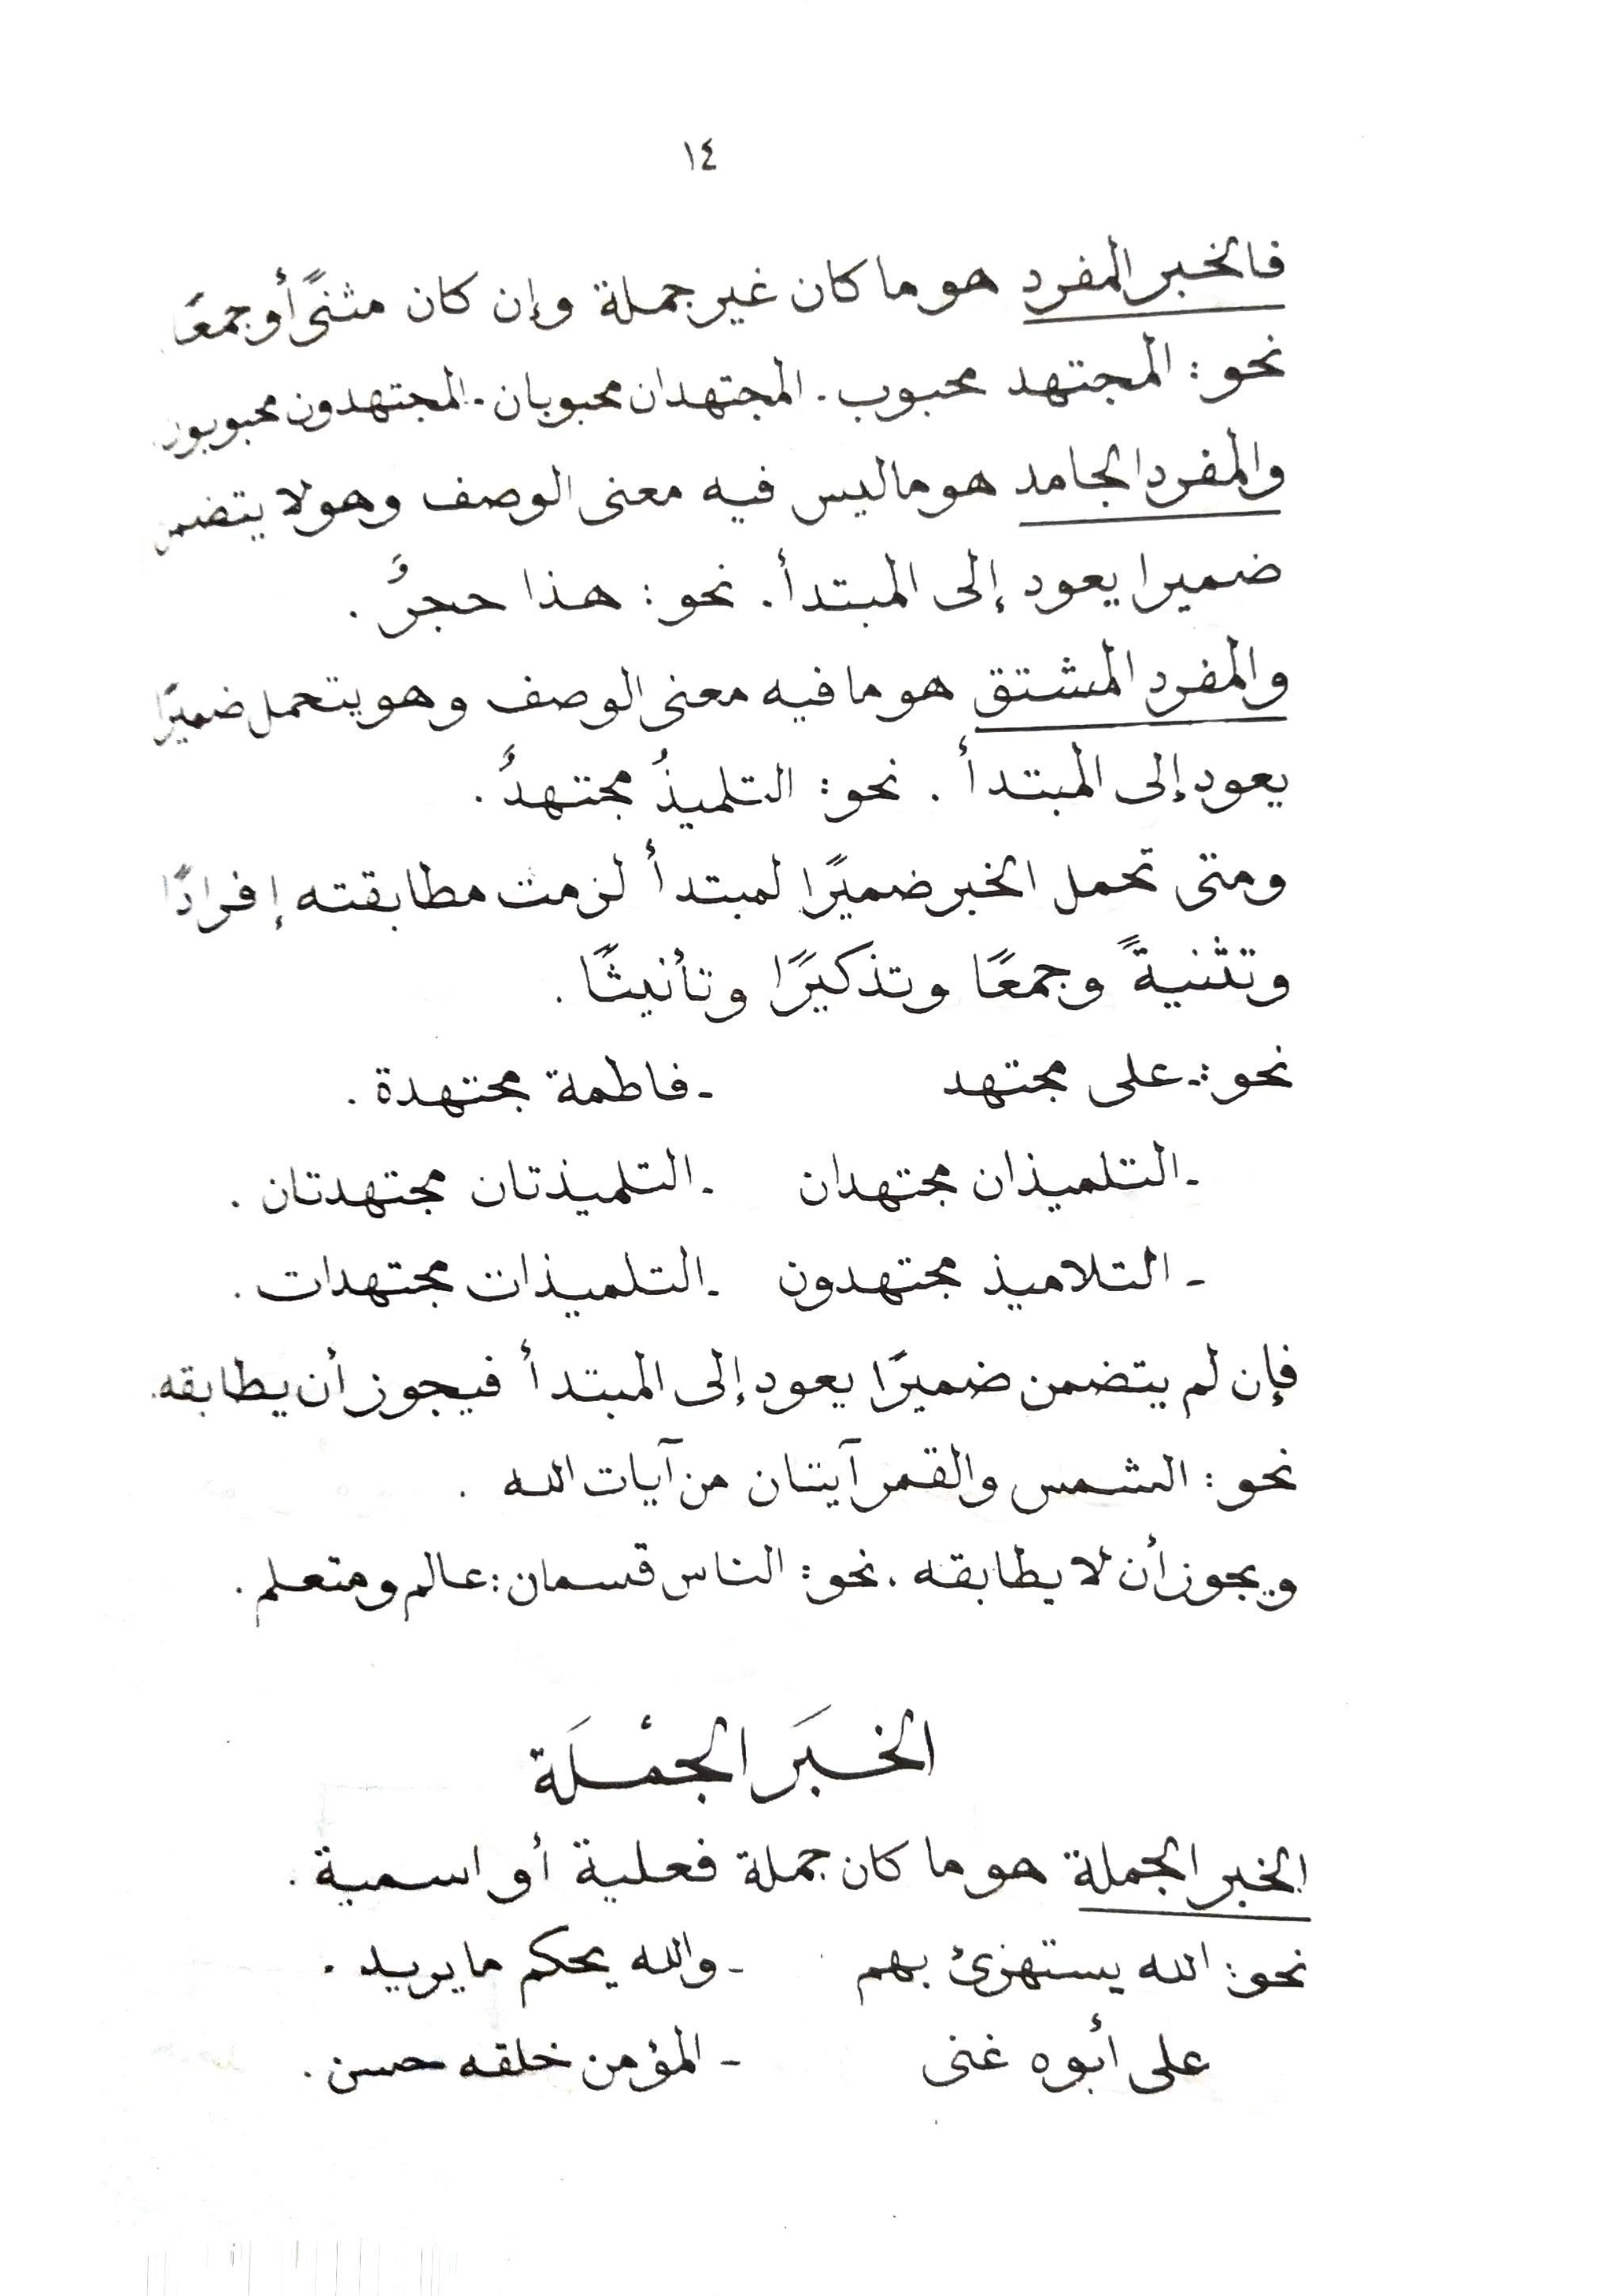 ١٤
فالخبر المفرد هو ما كان غير جملة وإن كان مثنىً أو جمعًا
نحو: المجتهد محبوب - المجتهدان محبوبان - المجتهدون محبوبون
والمفرد الجامد هو ما ليس فيه معنى الوصف وهو لا يتضمن
ضميرا يعود إلى المبتدأ. نحو: هذا حجرٌ.
والمفرد المشتق هو ما فيه معنى الوصف وهو يتحمل ضميرًا
يعود إلى المبتدأ. نحو: التلميذُ مجتهدٌ.
ومتى تحمل الخبر ضميرًا لمبتدأ لزمت مطابقته إفرادًا
وتثنيةً وجمعًا وتذكيرًا وتأنيثًا.
نحو: - على مجتهد - فاطمة مجتهدة.
- التلميذان مجتهدان - التلميذتان مجتهدتان.
- التلاميذ مجتهدون - التلميذات مجتهدات.
فإن لم يتضمن ضميرًا يعود إلى المبتدأ فيجوز أن يطابقه.
نحو: الشمس والقمر آيتان من آيات الله.
ويجوز أن لا يطابقه. نحو: الناس قسمان: عالم ومتعلم.
الخبَر الجمْلَة
الخبر الجملة هو ما كان جملة فعلية أو اسمية.
نحو: الله يستهزئ بهم - والله يحكم ما يريد.
على أبوه غنى - المؤمن خلقه حسن.